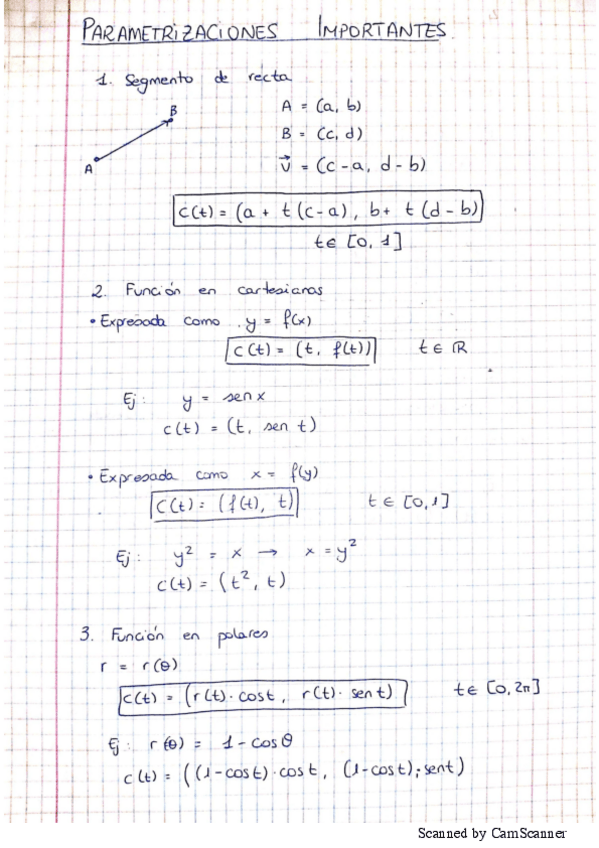 PARAMETRIZACIONES IMPORTANTES.
1. Segmento de recta
A = (a, b)
B = (c, d)
v⃗ = (c-a, d-b)
A B
c(t) = (a + t(c-a), b + t(d-b))
t ∈ [0, 1]
2. Función en cartesianas
• Expresada como y = f(x)
c(t) = (t, f(t)) t ∈ ℝ
Ej: y = sen x
c(t) = (t, sen t)
• Expresada como x = f(y)
c(t) = (f(t), t) t ∈ [0,1]
Ej: y² = x → x = y²
c(t) = (t², t)
3. Función en polares
r = r(θ)
c(t) = (r(t)·cost, r(t)·sent) t ∈ [0, 2π]
Ej: r(θ) = 1-cosθ
c(t) = ((1-cost)·cost, (1-cost)·sent)
Scanned by CamScanner